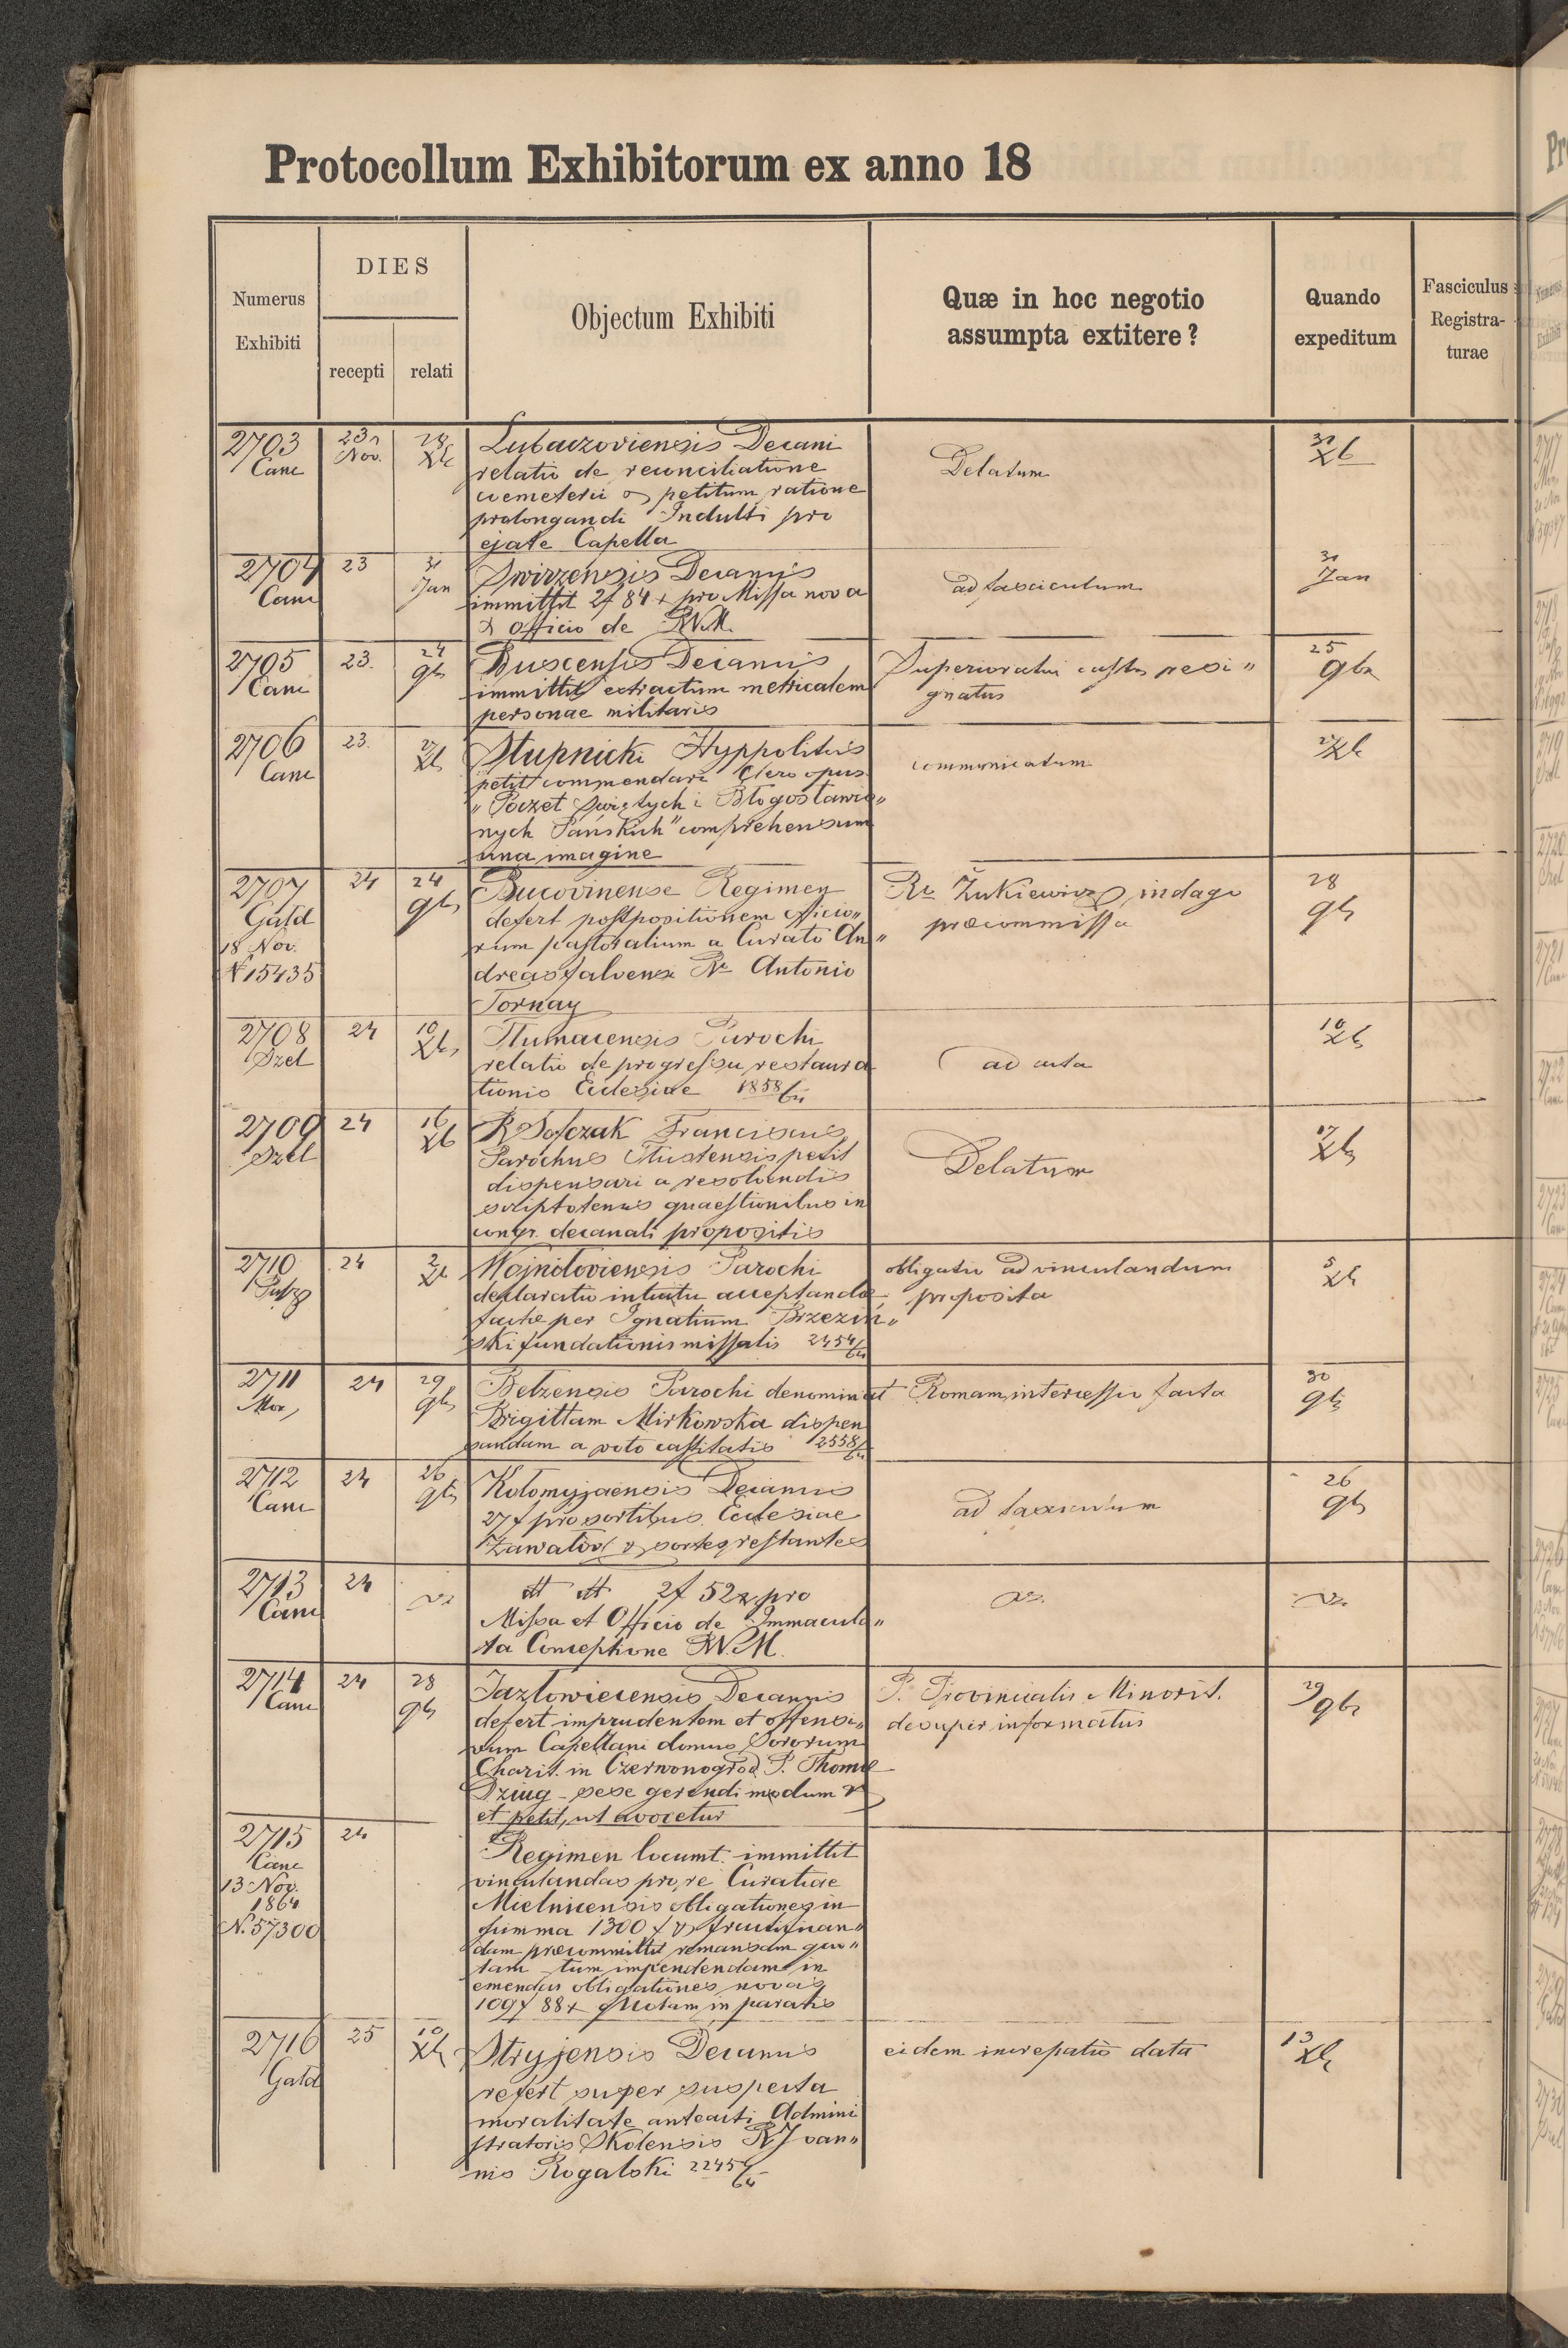 Protocollum Exhibitorum ex anno 18
Numerus Exhibiti
DIES
recepti
relati
Objectum Exhibiti
Quæ in hoc negotio
assumpta extitere?
Quando
expeditum
Fasciculus
Registra-
turae
2703
Canc
23
Nov.
Xb
Lubaczoviensis Decani
relatio de reconciliatione
coemeterii & petitum ratione
prolongandi Indulti pro
ejate Capella
Delatum
31
Xb
2704
Canc
23
31
Jan
Swirzensis Decanus
immittit 2f 84x pro Missa nova
& Officio de BVM.
ad fasciculum
31
Jan
2705
Canc
23.
24
9b
Buscensis Decanus
immittit extractum metricalem
personae militaris
Superioratui castr. resi„
gnatus
25
9br
2706
Canc
23.
27
Xb
Stupnicki Hyppolitus
petit commendari Clero opus
„Poczet Świętych i Błogosławio„
nych Pańskich" comprehensum
una imagine
communicatum
27
Xb
2707
Gald
18 Nov.
N 15435
24
24
9b
Bucovinense Regimen
defert postpositionem officio„
rum pastoralium a Curato An„
dreasfalvensi R. Antonio
Tornay
R. Żukiewicz indago
præcommissa
28
9b
2708
Szel
24
10
Xb
Tlumacensis Parochi
relatio de progressu restaura
tionis Ecclesiae 1858/64
ad acta
10
Xb
2709
Szel
24
16
Xb
R. Sofczak Franciscus
Parochus Tlustensis petit
dispensari a resolvendis
scriptotenus quaestionibus in
congr. decanali propositis
Delatum
17
Xb
2710
24
2
Xb
Wojniloviensis Parochi
declaratio intuitu acceptandæ
factæ per Ignatium Brzeziń„
ski fundationis missalis 2454/64
obligatio ad vinculandum
proposita
5
Xb
2711
Mor
24
29
9b
Belzensis Parochi denominat
Brigittam Mirkowska dispen
sandam a voto castitatis 2558/64
Romam intercessio facta
30
9b
2712
Canc
24
26
9b
Kolomyjaensis Decanus
27f pro sortibus Ecclesiae
Zawalov & sortes restantes
ad fasciculum
26
9b
2713
Canc
24
dt dt 2f 52x pro
Missa et Officio de Immacula„
ta Conceptione BV.M.
2714
Canc
24
28
9b
Jazlowiecensis Decanus
defert imprudentem et offensi„
vum Capellani domus Sororum
Charit. in Czerwonogród P. Thomæ
Dziug sese gerendi modum
et petit, ut avocetur
P. Provincialis Minorit.
desuper informatus
29
9br
2715
Canc
13 Nov.
1864
N. 57300
24
Regimen locumt. immittit
vinculandas pro re Curatiae
Mielnicensis obligationes in
summa 1300 f & fructifican„
dam præcommittit remansam quo„
tam tum impendendam in
emendas obligationes novas
109f 88x quotam in paratis
2716
Gald
25
10
Xb
Stryjensis Decanus
refert super suspecta
moralitate anteacti Admini
stratoris Skolensis R. Joan„
nis Rogalski 2245/64
eidem increpatio data
13
Xb